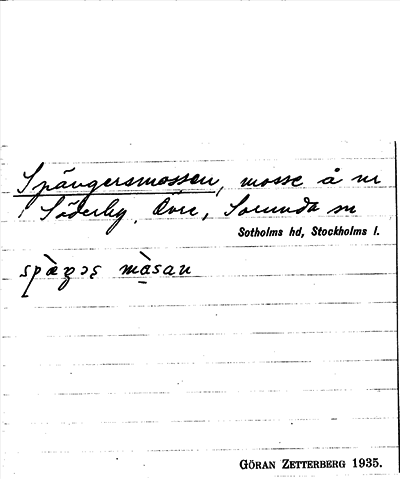 Spångersmossen, mosse å nr
1 Söderby, Övre, Sorunda sn
Sotholms hd, Stockholms l.
GÖRAN ZETTERBERG 1935.